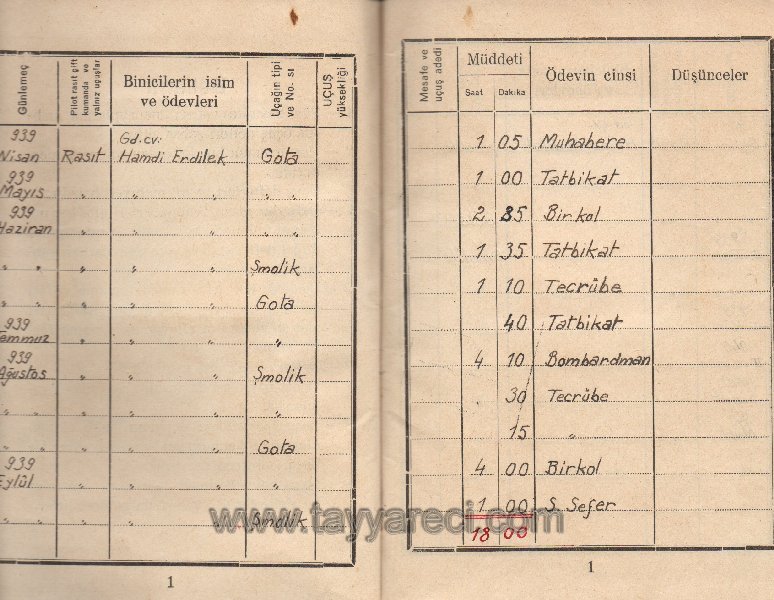 Günlemeç
Pilot rasıt çift
kumanda ve
yalnız uçuşlar
Binicilerin isim
ve ödevleri
Uçağın tipi
ve No. sı
UÇUŞ
yüksekliği
939
Nisan Rasıt Gd.cv. Hamdi Erdilek Gota
939
Mayıs " " " " "
939
Haziran " " " " "
" " " " " Şmolik
" " " " " Gota
939
Temmuz " " " "
939
Ağustos " " " Şmolik
" " " " " "
" " " " " Gota
939
Eylûl " " " "
" " " " " Şmolik
1
Mesafe ve
uçuş adedi
Müddeti
Saat Dakika
Ödevin cinsi
Düşünceler
1 05 Muhabere
1 00 Tatbikat
2 35 Birkol
1 35 Tatbikat
1 10 Tecrübe
40 Tatbikat
4 10 Bombardman
30 Tecrübe
15 "
4 00 Birkol
1 00 S. Sefer
18 00
1
www.tayyareci.com